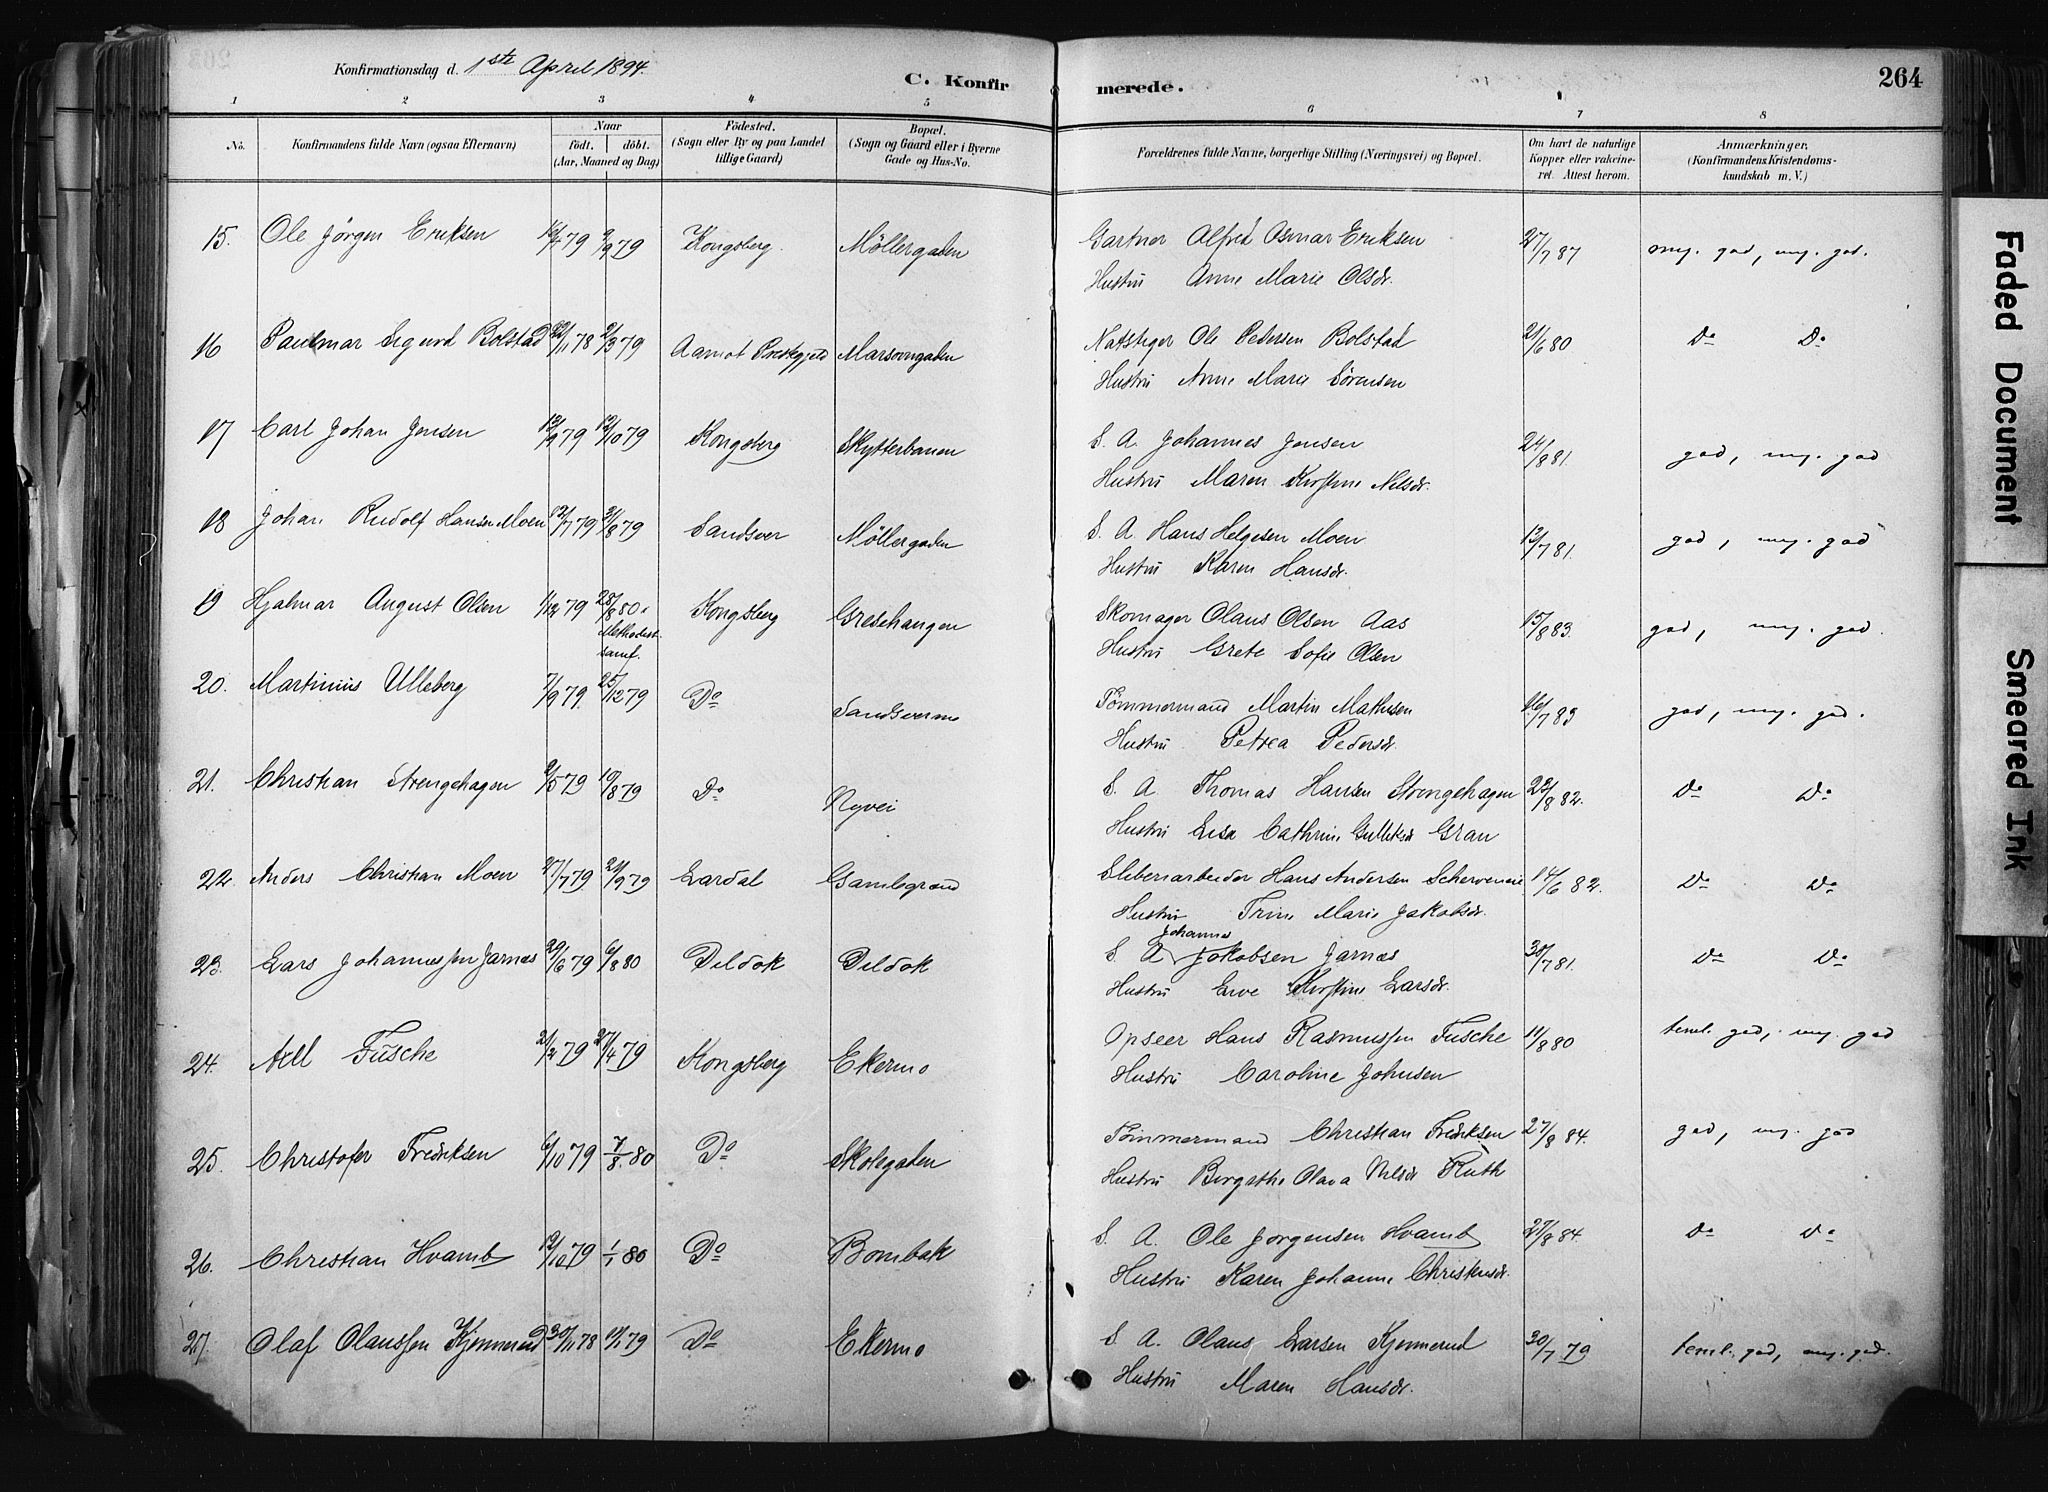 Konfirmationsdag d. 1ste April 1894.
C. Konfirmerede.
264
1 2 3 4 5 6 7 8
No.
Konfirmandens fulde Navn (ogsaa Efternavn)
Naar
födt. döbt.
(Aar, Maaned og Dag)
Födested.
(Sogn eller By og paa Landet
tillige Gaard)
Bopæl.
(Sogn og Gaard eller i Byerne
Gade og Hus-No.
Forældrenes fulde Navne, borgerlige Stilling (Næringsvei) og Bopæl.
Om havt de naturlige
Kopper eller vakcine-
ret. Attest herom.
Anmærkninger.
(Konfirmandens Kristendoms-
kundskab m. V.)
15. Ole Jörgen Eriksen 79 9/9 79 Kongsberg. Möllergaden Gartner Alfred Osmar Eriksen 27/7 87 mg. god, mg. god.
Hustru Anne Marie Olsdr.
16 Paulmar Sigurd Bolstad 22/11 78 2/3 79 Aamot Prestegjeld Natstiger Ole Pedersen Bolstad 21/6 80 Do Do
Hustru Anne Marie Sörensen
17 Carl Johan Jensen 13/9 79 12/10 79 Kongsberg Skytterbanen S. A. Johannes Jensen 24/8 81. god, mg. god
Hustru Maren Kirstine Nelsdr.
18 Johan Rudolf Hansen Moen 12/7 79 31/8 79 Sandsver Möllergaden S. A. Hans Helgesen Moen 12/7 81. god, mg. god
Hustru Karen Hansdr.
19 Hjalmar August Olsen 1/12 79 28/8 80. Kongsberg Gresehaugen Skomager Olaus Olsen Aas 15/8 83. god, mg. god.
Methodest
samf.
Hustru Grete Sofie Olsen
20. Martinius Ulleberg 7/9 79. 25/12 79 Do Sandsvermo Tömmermand Martin Mathisen 16/7 83 god, mg. god.
Hustru Petrea Pedersdr.
21. Christian Strengehagen 2/5 79 10/8 79 Do Nyvei S. A. Thomas Hansen Strengehagen 22/8 82. Do Do
Hustru Lisa Cathrine Gulliksdr Gran
22. Anders Christian Moen 27/7 79 21/9 79 Lardal Gamlegrend Sliberiarbeider Hans Andersen 14/6 82. Do Do
Hustru Trine Marie Jakobsdr.
23. Lars Johannessen Jarnæs 29/6 79 6/8 80 Deldok Deldok S. A Johannes Jakobsen Jarnæs 30/7 81. Do Do
Hustru Live Kirstine Larsdr.
24. Axll Fusche 21/2 79 27/4 79 Kongsberg Ekermo Opseer Hans Rasmussen Fusche 11/8 80 teml. god, mg. god
Hustru Caroline Johnsen
25. Christofer Fredriksen 6/10 79 7/8. 80 Do Skolegaden Tömmermand Christian Fredriksen 27/8 84. god, mg. god
Hustru Birgitthe Olava Nilsdr Ruth
26. Christian Hvamb 12/10 79 1/1 80 Do Bombak S. A. Ole Jörgensen Hvamb 27/8 84. Do Do
Hustru Karen Johanne Christensdr.
27. Olaf Olaussen Kjennerud 30/11 78 79 Do Ekermo S. A. Olaus Larsen Kjennerud 30/7 79 teml. god, mg. god.
Hustru Maren Hansdr.
Faded Document
Smeared Ink